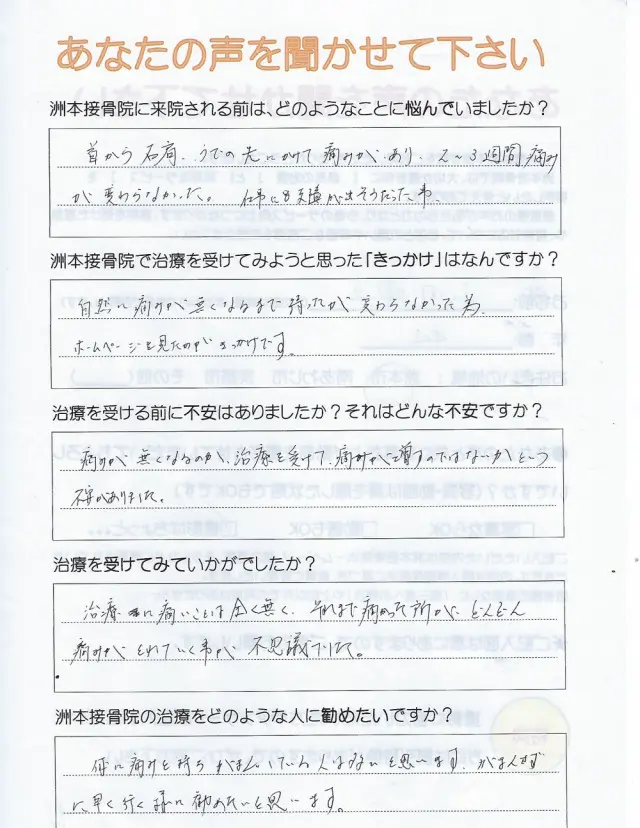 あなたの声を聞かせて下さい
洲本接骨院に来院される前は、どのようなことに悩んでいましたか？
首から右肩、うでの先にかけて痛みがあり、2～3週間痛み
が変わらなかった。 仕事にも支障が出そうだった事。
洲本接骨院で治療を受けてみようと思った「きっかけ」はなんですか？
自然に痛みが無くなるまで待ったが変わらなかった為、
ホームページを見たのがきっかけです。
治療を受ける前に不安はありましたか？それはどんな不安ですか？
痛みが無くなるのか、治療を受けて、痛みが増すのではないかという
不安がありました。
治療を受けてみていかがでしたか？
治療中に痛いことは全く無く、それまで痛かった所が、どんどん
痛みがとれていく事が不思議でした。
洲本接骨院の治療をどのような人に勧めたいですか？
体に痛みを持ちがまんしている人は多いと思います。がまんせず
に早く行く様に勧めたいと思います。